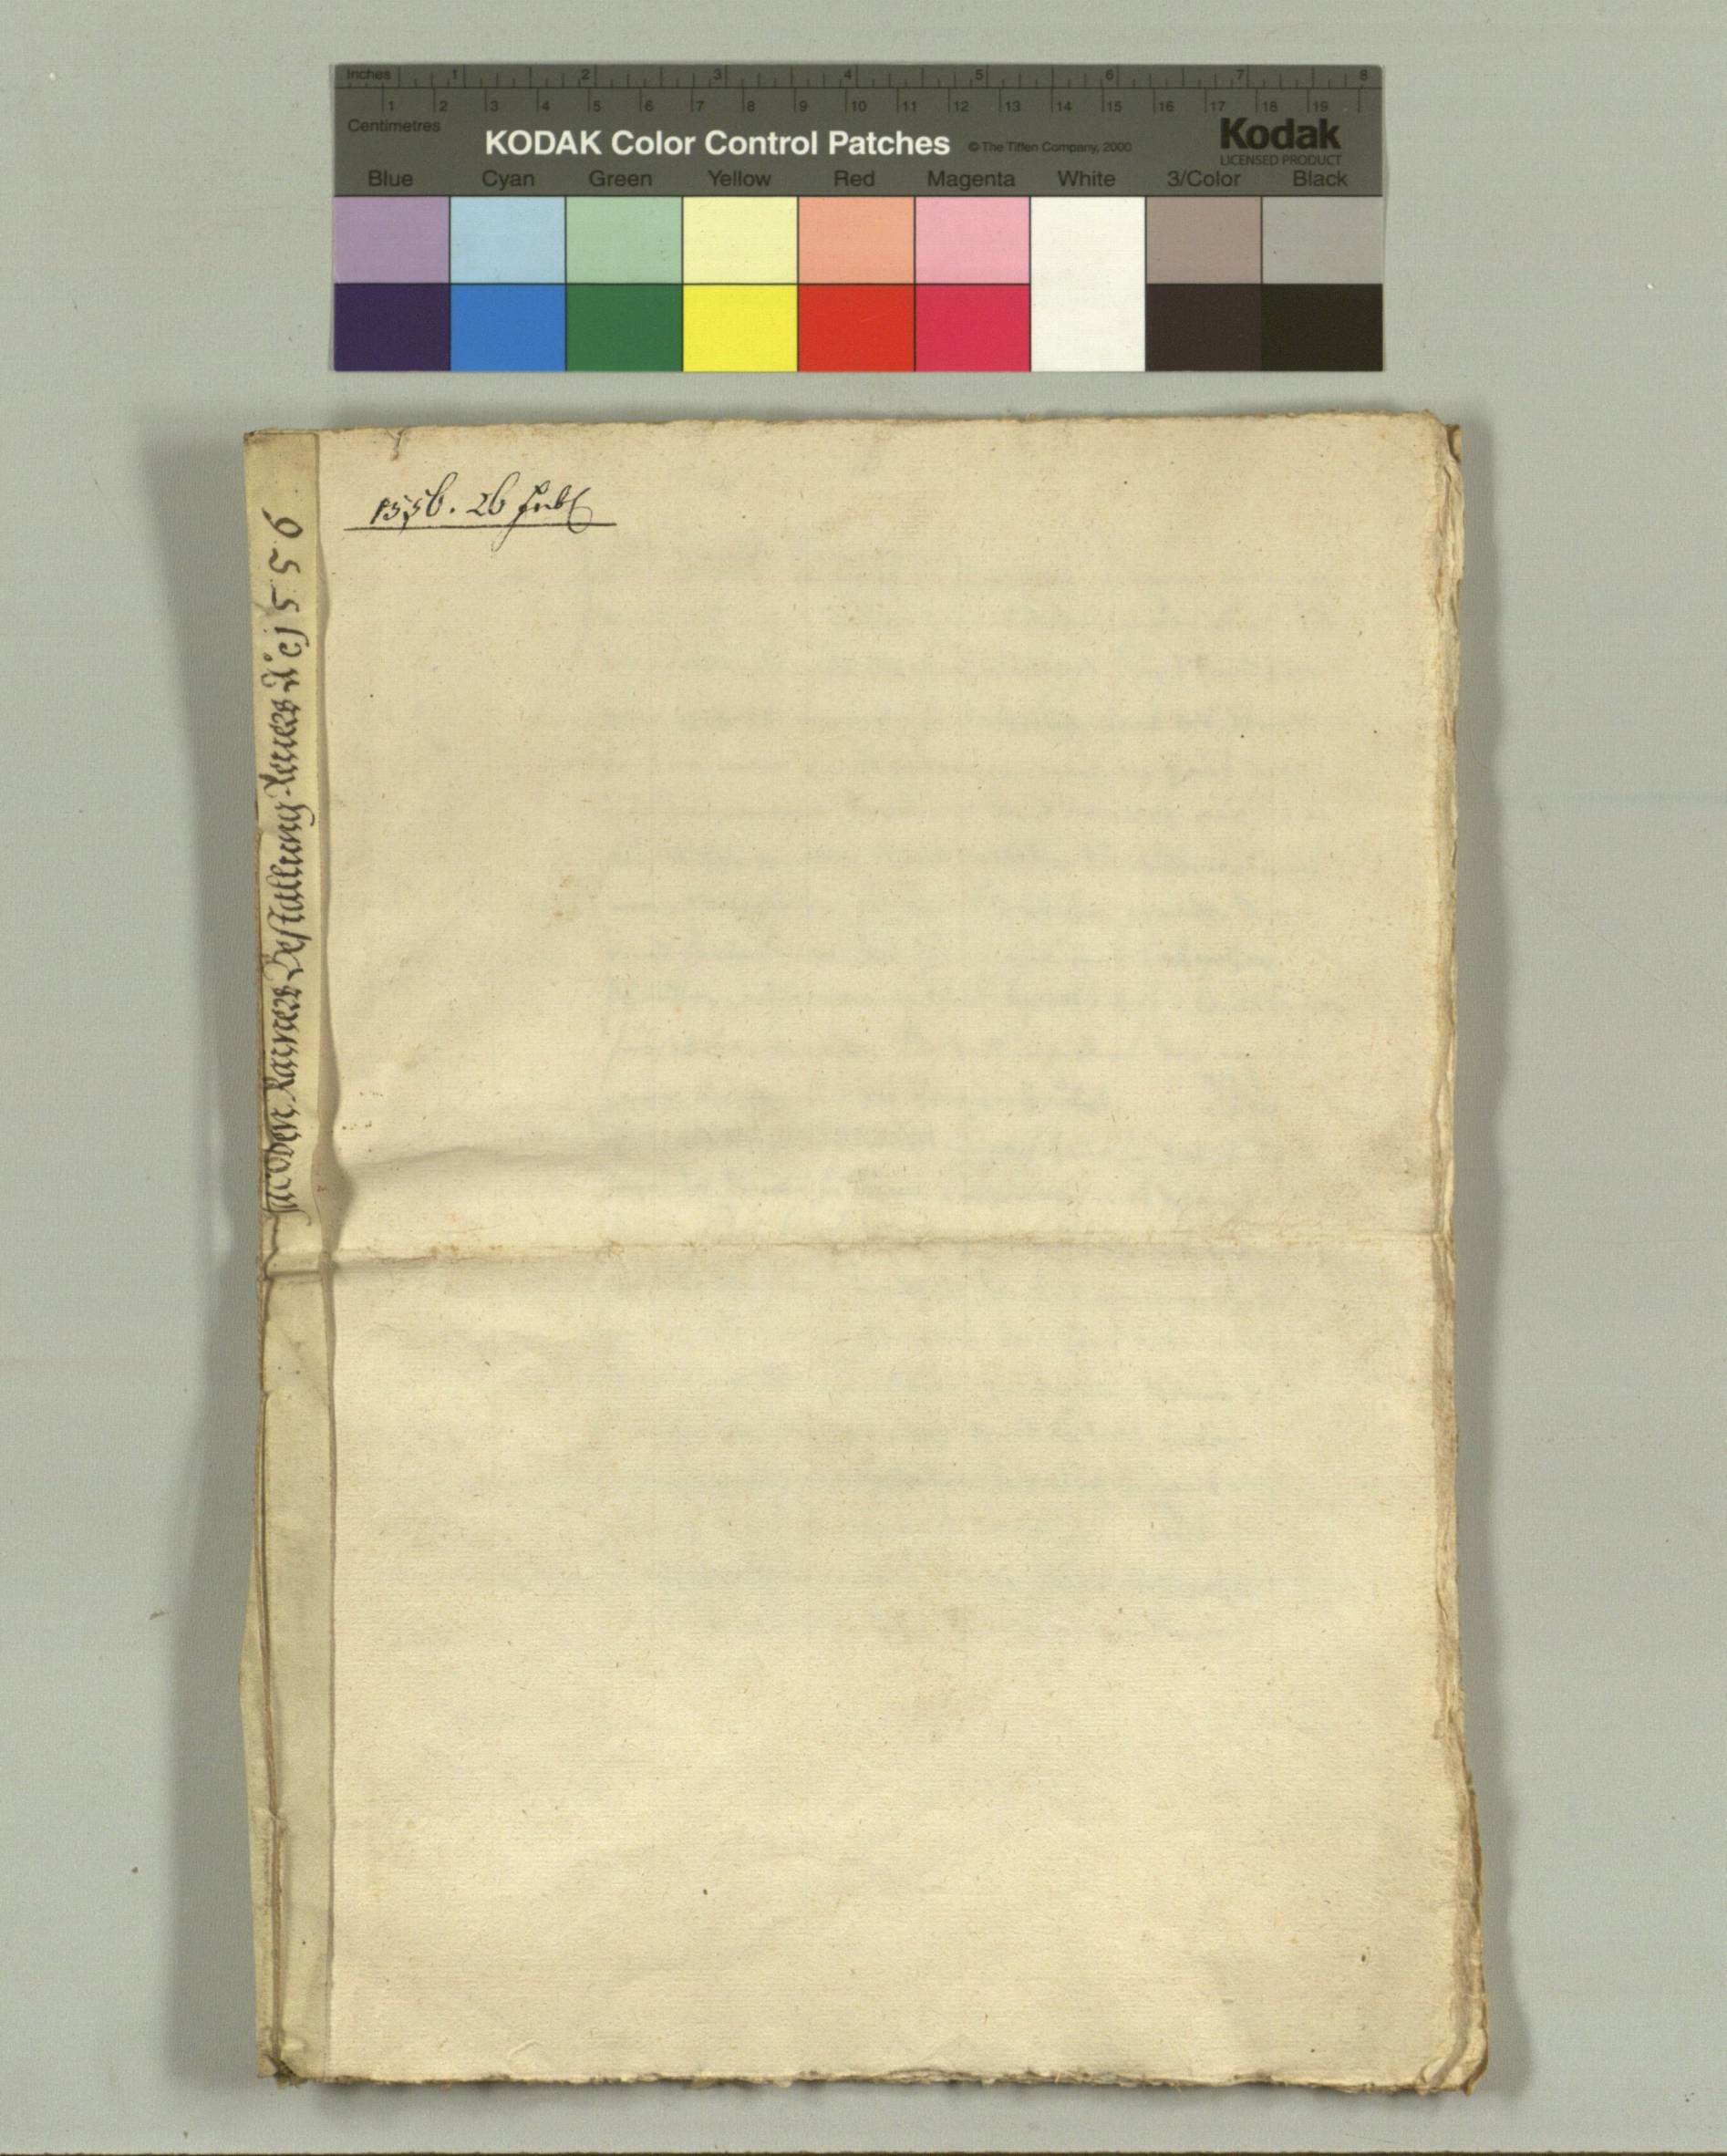 Inches 1 2 3 4 5 6 7 8
1 2 3 4 5 6 7 8 9 10 11 12 13 14 15 16 17 18 19
Centimetres
KODAK Color Control Patches © The Tiffen Company, 2000 Kodak
LICENSED PRODUCT
Blue Cyan Green Yellow Red Magenta White 3/Color Black
1556. 26 Jul
Bestallung 1556